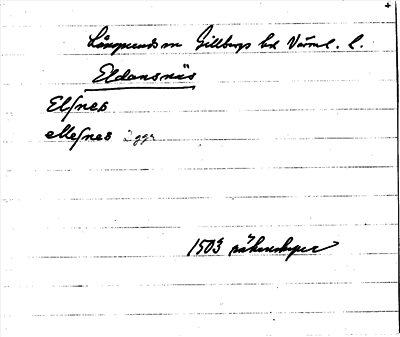 Långserud sn Gillbergs hd Värml. l.
Eldansnäs
Elſnes
elleſnes 2 ggr
1503 räkenskaper